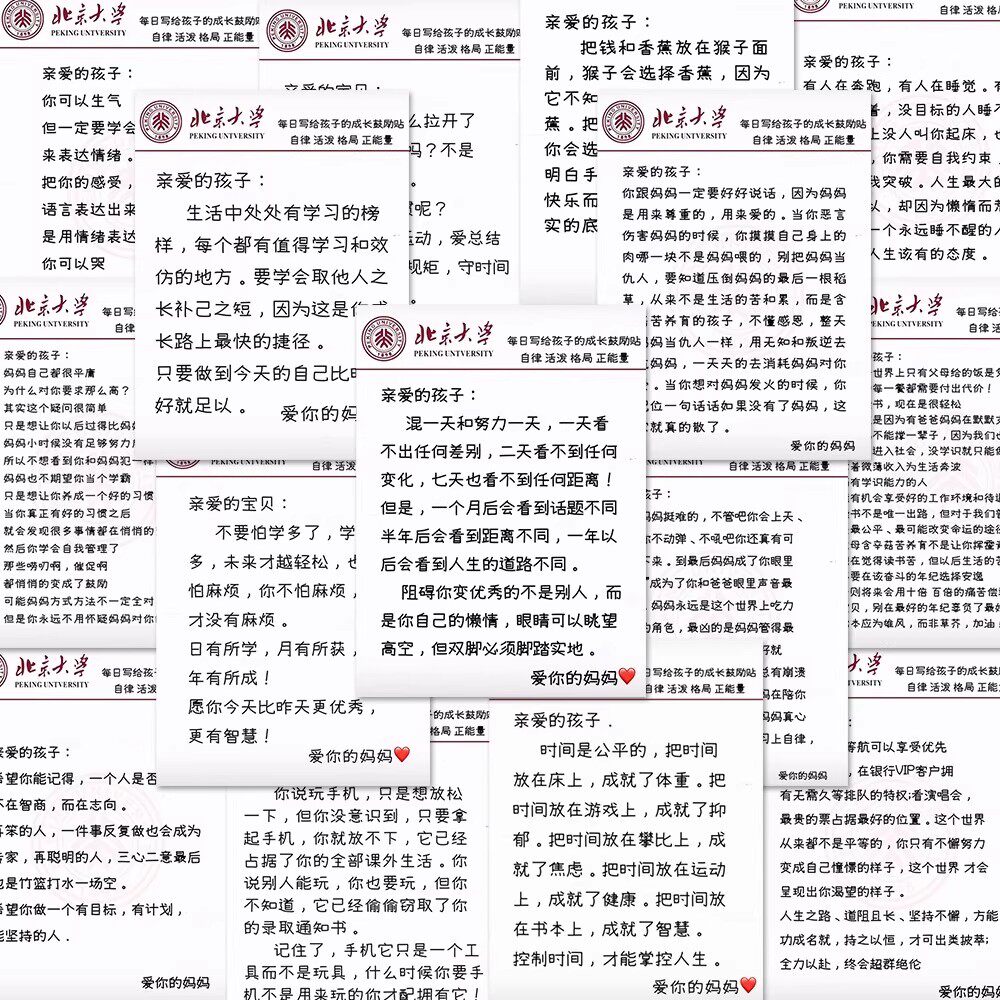 北京大学
PEKING UNIVERSITY
每日写给孩子的成长鼓励贴
自律 活泼 格局 正能量
亲爱的孩子：
你可以生气
但一定要学会
来表达情绪。
把你的感受，
语言表达出来
是用情绪表达
你可以哭
北京大学
PEKING UNIVERSITY
每日写给孩子的成长鼓励贴
自律 活泼 格局 正能量
亲爱的宝贝：
么拉开了
吗？不是
呢？
运动，爱总结
规矩，守时间
亲爱的孩子：
把钱和香蕉放在猴子面
前，猴子会选择香蕉，因为
它不知
蕉。把
你会选
明白手
快乐而
实的底
PEKING UNIVERSITY
自律 活泼 格局 正能量
亲爱的孩子：
有人在奔跑，有人在睡觉。有
，没目标的人睡不
上没人叫你起床，也
，你需要自我约束，
我突破。人生最大的
以，却因为懒惰而
一个永远睡不醒的人
人生该有的态度。
北京大学
PEKING UNIVERSITY
每日写给孩子的成长鼓励贴
自律 活泼 格局 正能量
亲爱的孩子：
生活中处处有学习的榜
样，每个都有值得学习和效
仿的地方。要学会取他人之
长补己之短，因为这是你成
长路上最快的捷径。
只要做到今天的自己比昨
好就足以。
爱你的妈
北京大学
PEKING UNIVERSITY
每日写给孩子的成长鼓励贴
自律 活泼 格局 正能量
亲爱的孩子：
你跟妈妈一定要好好说话，因为妈妈
是用来尊重的，用来爱的。当你恶言
伤害妈妈的时候，你摸摸自己身上的
肉哪一块不是妈妈喂的，别把妈妈当
仇人，要知道压倒妈妈的最后一根稻
草，从来不是生活的苦和累，而是含
苦养育的孩子，不懂感恩，整天
妈当仇人一样，用无知和叛逆去
妈妈，一天天的去消耗妈妈对你
。当你想对妈妈发火的时候，你
记位一句话话如果没有了妈妈，这
家就真的散了。
爱你的妈妈
北京大学
PEKING UNIVERSITY
每日写
自律
亲爱的孩子：
妈妈自己都很平庸
为什么对你要求那么高？
其实这个疑问很简单
只是想让你以后过得比妈妈
妈妈小时候没有足够努力
所以不想看到你和妈妈犯一样
妈妈也不期望你当个学霸
只是想让你养成一个好的习惯
当你真正有好的习惯之后
就会发现很多事情都在悄悄的
然后你学会自我管理了
那些唠叨啊，催促啊
都悄悄的变成了鼓励
可能妈妈方式方法不一定全对
但是你永远不用怀疑妈妈对你
北京大学
PEKING UNIVERSITY
每日写给孩子的成长鼓励贴
自律 活泼 格局 正能量
亲爱的孩子：
混一天和努力一天，一天看
不出任何差别，二天看不到任何
变化，七天也看不到任何距离！
但是，一个月后会看到话题不同
半年后会看到距离不同，一年以
后会看到人生的道路不同。
阻碍你变优秀的不是别人，而
是你自己的懒惰，眼睛可以眺望
高空，但双脚必须脚踏实地。
爱你的妈妈
北京大学
PEKING UNIVERSITY
每日写
自律
孩子：
世界上只有父母给的饭是
每一餐都需要付出代价！
书，现在是很轻松
是因为有爸爸妈妈在默默
不能撑一辈子，因为我们
进入社会，没学识就只能
着微薄收入为生活奔波
有学识能力的人
有机会享受好的工作环境和待
书不是唯一出路，但对于我们
最公平、最可能改变命运的途径
母含辛茹苦养育不是让你挥霍
在觉得读书苦，但以后生活的苦
要在该奋斗的年纪选择安逸
则将来会用十倍 百倍的痛苦偿
贝，别在最好的年纪辜负了最
本应为雄风，而非草芥，加油
PEKING UNIVERSITY
自律 活泼 格局
亲爱的宝贝：
不要怕学多了，学
多，未来才越轻松，也
怕麻烦，你不怕麻烦，
才没有麻烦。
日有所学，月有所获，
年有所成！
愿你今天比昨天更优秀，
更有智慧！
爱你的妈妈
PEKING UNIVERSITY
自律 活泼 格局 正能量
孩子：
妈挺难的，不管吧你会上天、
你不动弹、不吼吧你还真有可
来。到最后妈妈成了你眼里
”成为了你和爸爸眼里声音最
妈妈永远是这个世界上吃力
的角色，最凶的是妈妈管得最
好就
总有崩溃
妈在陪你
妈妈真心
习上自律，
爱你的妈妈
北京大学
PEKING UNIVERSITY
每日写给孩子的成长鼓励贴
自律 活泼 格局
亲爱的孩子：
希望你能记得，一个人是否
不在智商，而在志向。
再笨的人，一件事反复做也会成为
专家，再聪明的人，三心二意最后
也是竹篮打水一场空。
希望你做一个有目标，有计划，
能坚持的人.
爱你的妈妈
的成长鼓励
格局 正能量
你说玩手机，只是想放松
一下，但你没意识到，只要拿
起手机，你就放不下，它已经
占据了你的全部课外生活。你
说别人能玩，你也要玩，但你
不知道，它已经偷偷窃取了你
的录取通知书。
记住了，手机它只是一个工
具而不是玩具，什么时候你要手
机不是用来玩的你才配拥有它！
日写给孩子的成长鼓励贴
自律 活泼 格局 正能量
亲爱的孩子.
时间是公平的，把时间
放在床上，成就了体重。把
时间放在游戏上，成就了抑
郁。把时间放在攀比上，成
就了焦虑。把时间放在运动
上，成就了健康。把时间放
在书本上，成就了智慧。
控制时间，才能掌控人生。
爱你的妈妈
大学
UNIVERSITY
每日写给孩子的成长鼓励贴
自律 活泼 格局 正能量
等航可以享受优先
，在银行VIP客户拥
有无需久等排队的特权;看演唱会，
最贵的票占据最好的位置。这个世界
从来都不是平等的，你只有不懈努力
变成自己憧憬的样子，这个世界 才会
呈现出你渴望的样子。
人生之路、道阻且长、坚持不懈，方能
功成名就，持之以恒，才可出类披萃;
全力以赴，终会超群绝伦
爱你的妈